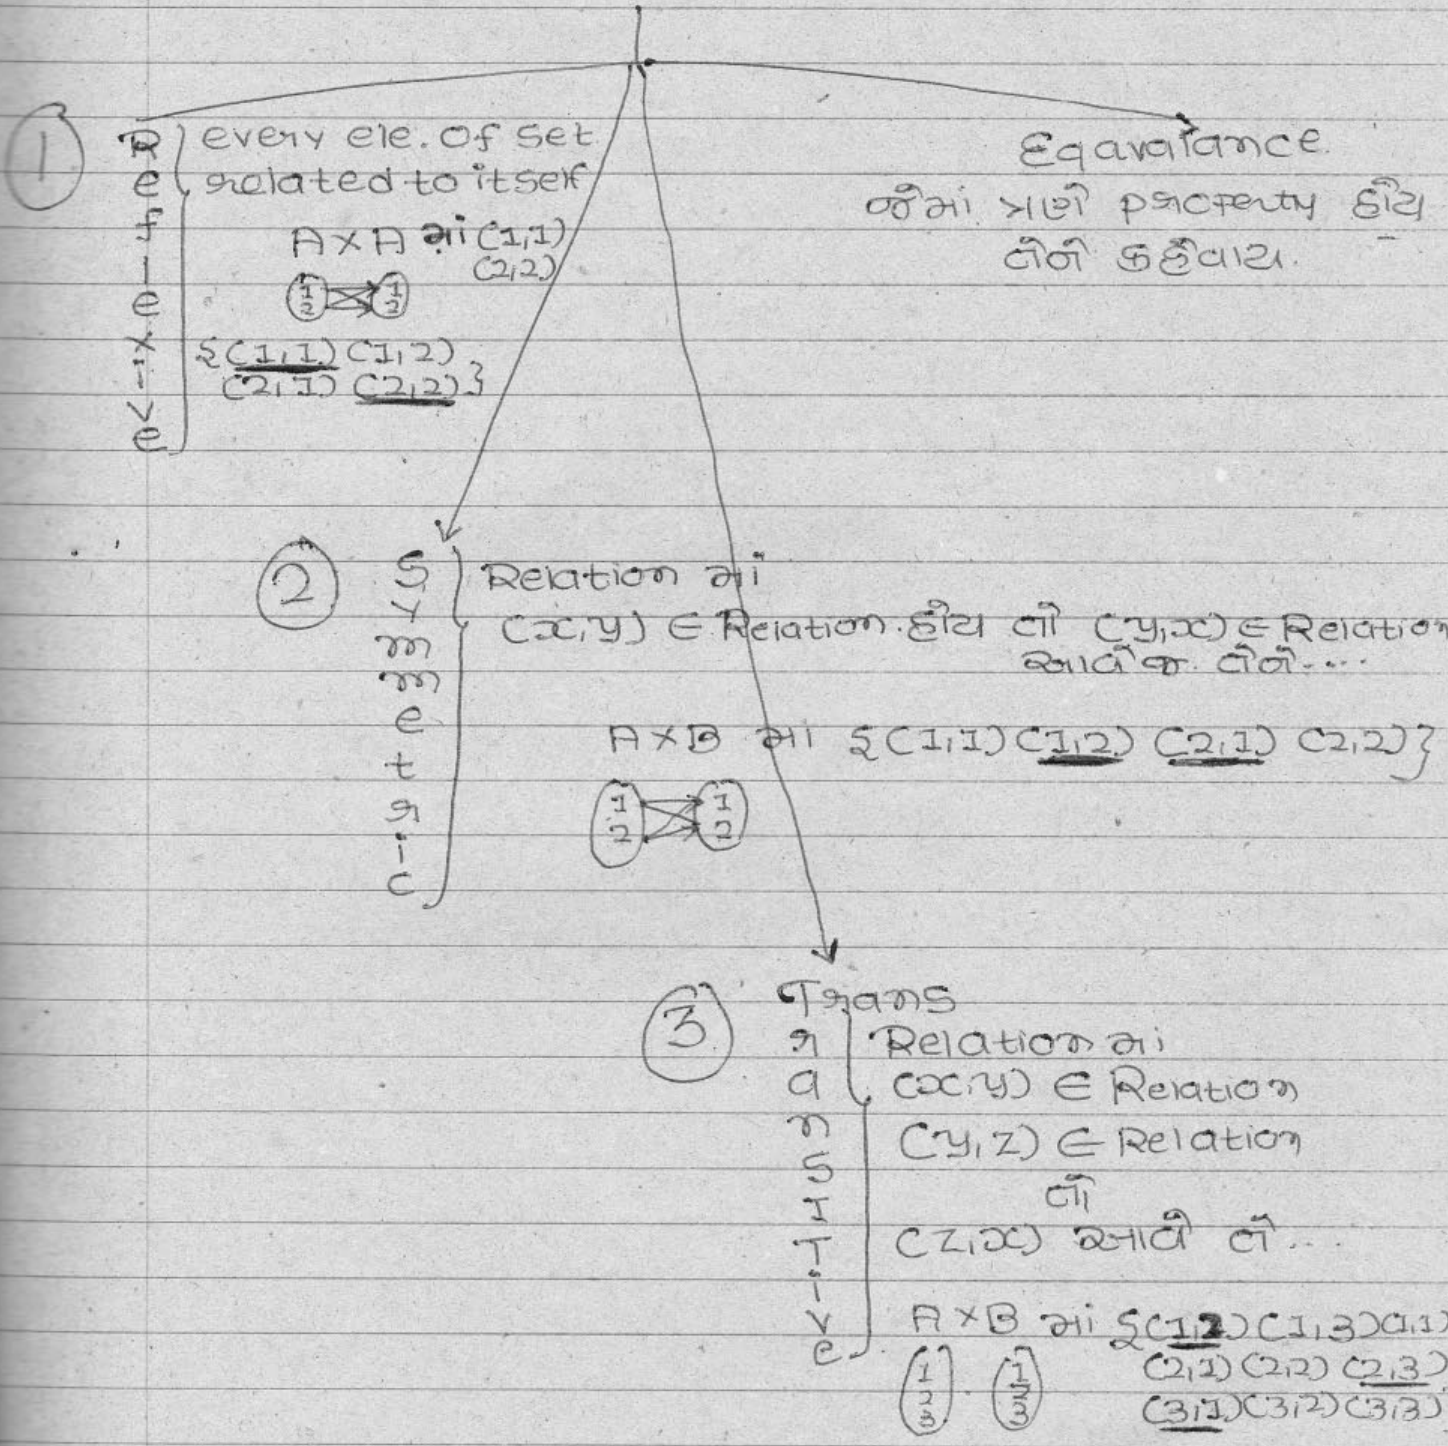 1
Reflexive
every ele. of set
related to itself
A×A માં (1,1)
(2,2)
1 2 1 2
{(1,1) (1,2)
(2,1) (2,2)}
Eqavalance.
જેમાં ત્રણે property હોય
તેને કહેવાય.
2
Symmetric
Relation માં
(x,y) ∈ Relation હોય તો (y,x) ∈ Relation
આવે જ તેને....
A×B માં {(1,1) (1,2) (2,1) (2,2)}
1 2 1 2
3
Trans
ransItive
Relation માં
(x,y) ∈ Relation
(y,z) ∈ Relation
તો
(z,x) આવે તે...
A×B માં {(1,2) (1,3) (1,1)
1 2 3 . 1 2 3
(2,1) (2,2) (2,3)
(3,1) (3,2) (3,3)